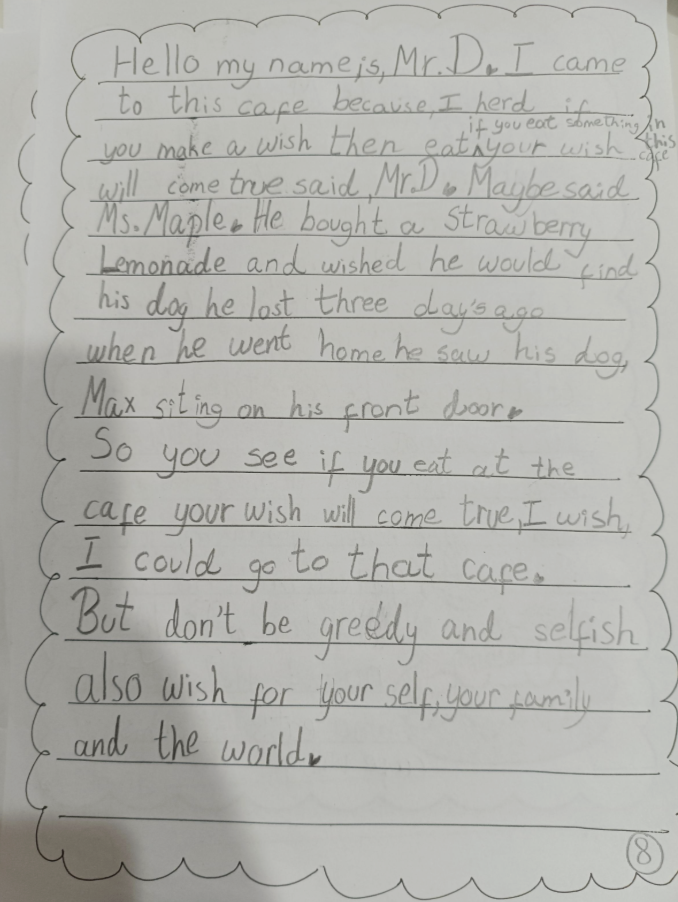 Hello my name,is, Mr.D. I came
to this cafe because, I herd if
if you eat something in this cafe
you make a wish then eat^your wish
will come true said, Mr.D. Maybe said
Ms.Maple. He bought a strawberry
Lemonade and wished he would find
his dog he lost three day's ago
when he went home he saw his dog,
Max siting on his front door.
So you see if you eat at the
cafe your wish will come true, I wish,
I could go to that cafe.
But don't be greedy and selfish
also wish for your self, your family
and the world.
8